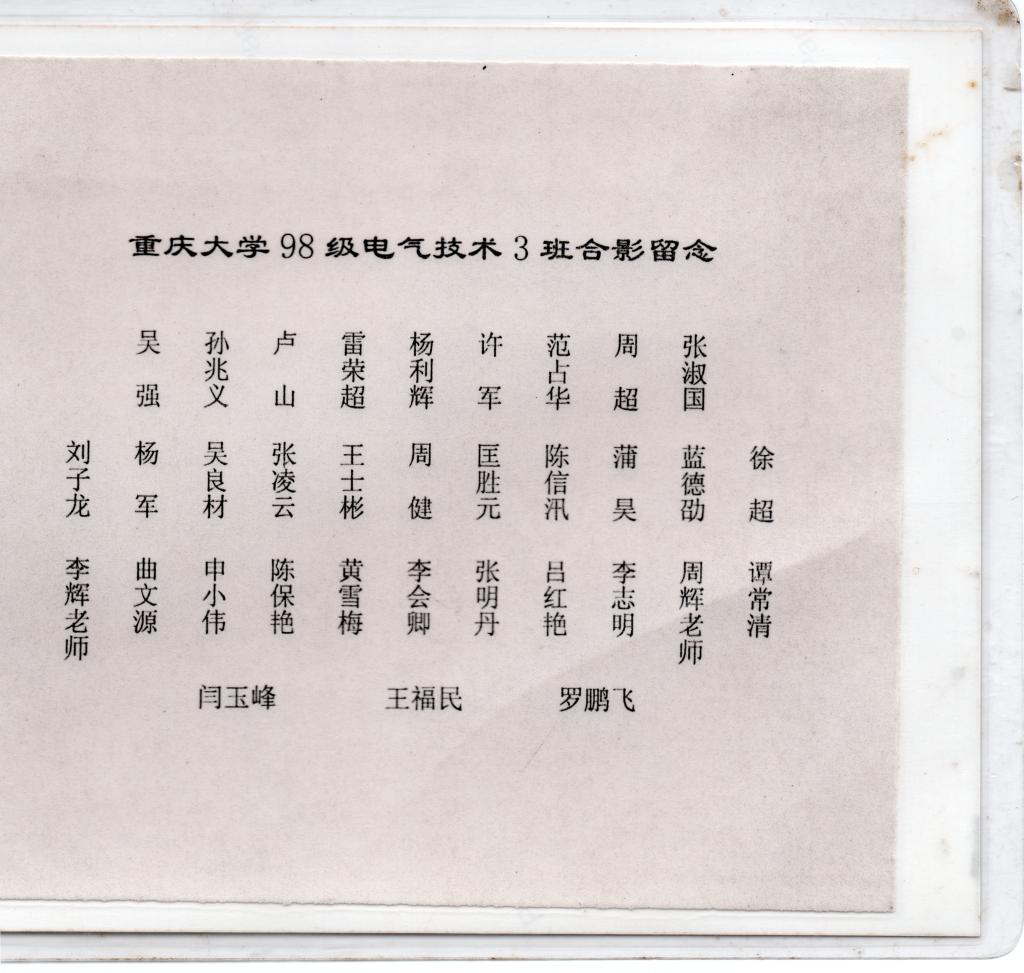 重庆大学98级电气技术3班合影留念
吴强 孙兆义 卢山 雷荣超 杨利辉 许军 范占华 周超 张淑国
刘子龙 杨军 吴良材 张凌云 王士彬 周健 匡胜元 陈信汛 蒲昊 蓝德劭 徐超
李辉老师 曲文源 申小伟 陈保艳 黄雪梅 李会卿 张明丹 吕红艳 李志明 周辉老师 谭常清
闫玉峰 王福民 罗鹏飞